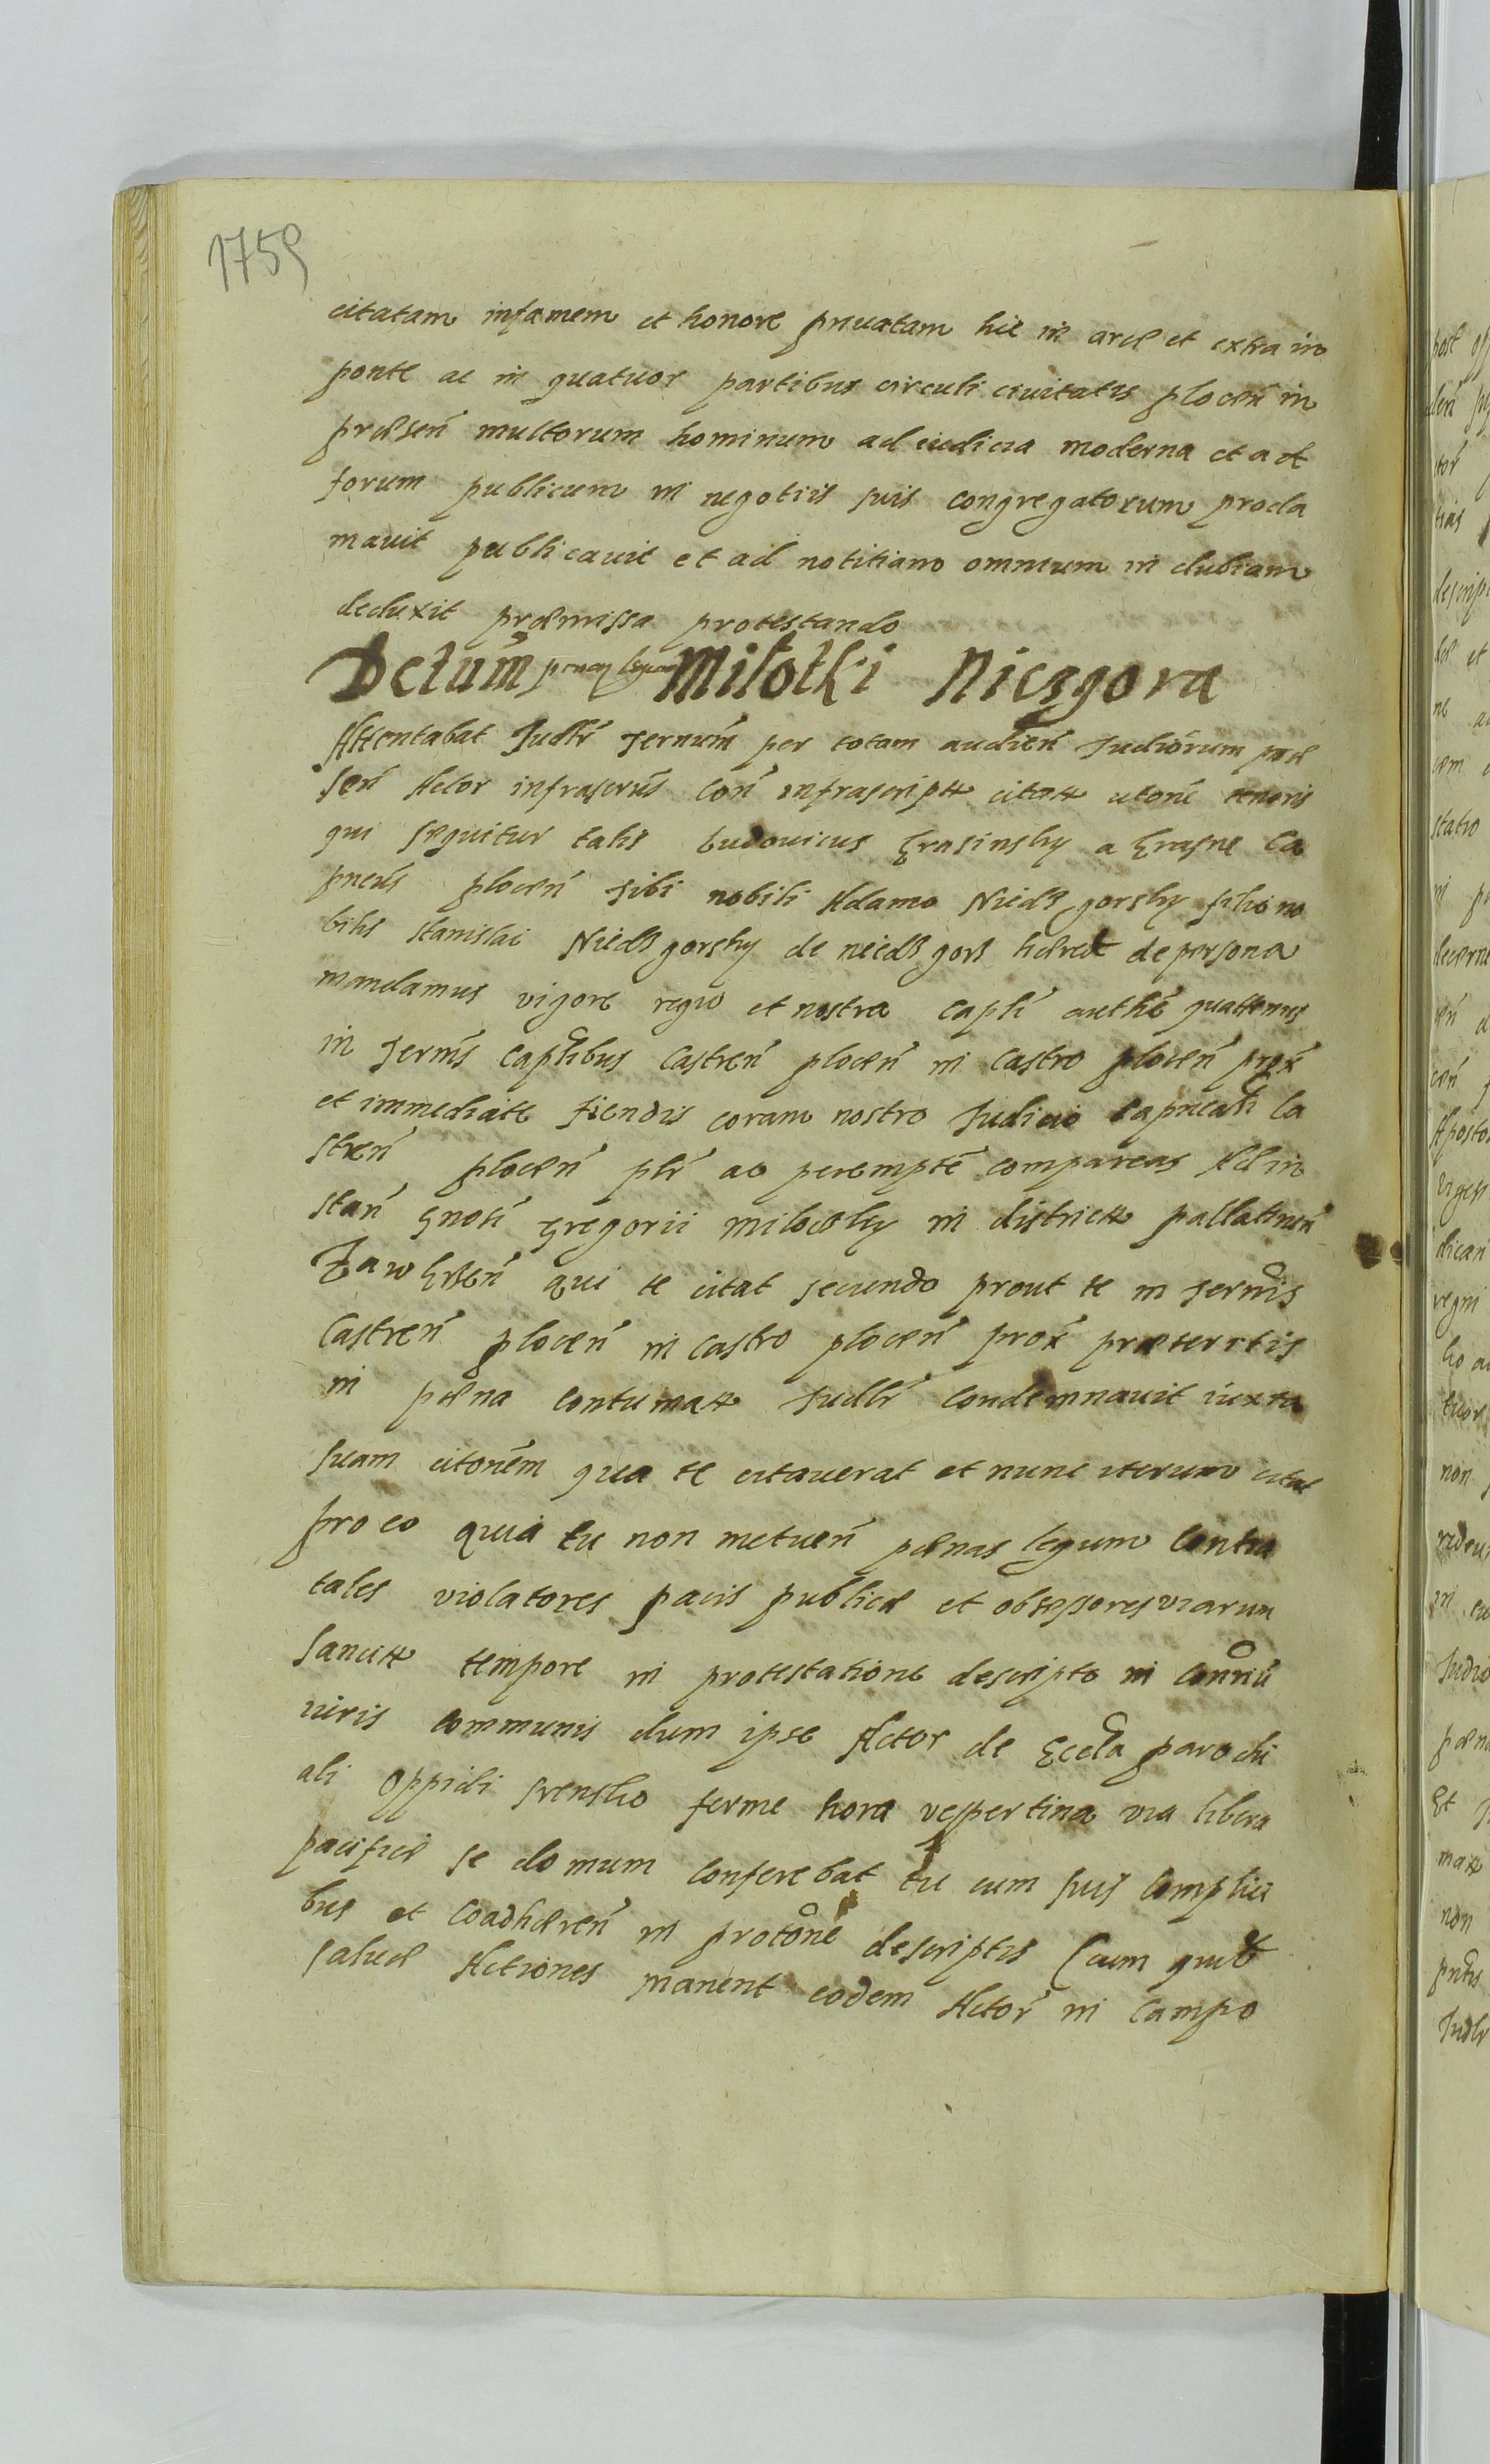 1759
citatam infamem et honore privatam hic in arce et extra in
ponte ac in quatuor partibus circuli civitatis plocen̄ in
præsen̄ multorum hominum ad iudicia moderna et ad
forum publicum in negotiis suis congregatorum procla
mavit publicavit et ad notitiam omnium in dubiam
deduxit præmissa protestando
Dctum̄ Miłotki Niczgora
Attentabat Judlr̄ Jernum̄ per totam audien̄ Judiorum præ
sen̄ Actor infrascrūs con̄ infrascriptt citatt citōne tenoris
qui sequitur talis Ludovicus Krasinsky a Krasne Ca
pneūs plocen̄ tibi nobili Adamo Niedzgorsky filio no
bilis Stanislai Niedzgorsky de Niedzgorz hæred de persona
mandamus vigore regio et nostra caplī authē quattenus
in termīs caplibus Castren̄ plocen̄ in Castro plocen̄ prox̄
et immediate fiendis coram nostro Judicio Capneali Ca
stren̄ plocen̄ plr̄ ac perempte compareas Ad in
stan̄ Gnosī Gregorii milocsky in districtt pallatinen̄
Zawkrzen̄ qui te citat secundo prout te in termīs
Castren̄ plocen̄ in Castro plocen̄ prox̄ præteritis
in pæna contumatt Judlr̄ condemnavit iuxta
suam citonēm qua te citaverat et nunc iterum citat
pro eo quia tu non metuen̄ pænas legum Contra
tales violatores pacis publicæ et obsessores viarum
sancitt tempore in protestatione descripto in Conn̄iū
iuris communis dum ipse Actor de Eccla parochi
ali oppidi srensko ferme hora vespertina via libera
pacifice se domum conferebat tu cum suis Complici
bus et Coadhæren̄ in protone descriptis (cum quib
salvæ Actiones manent eodem Actor̄ in Campo